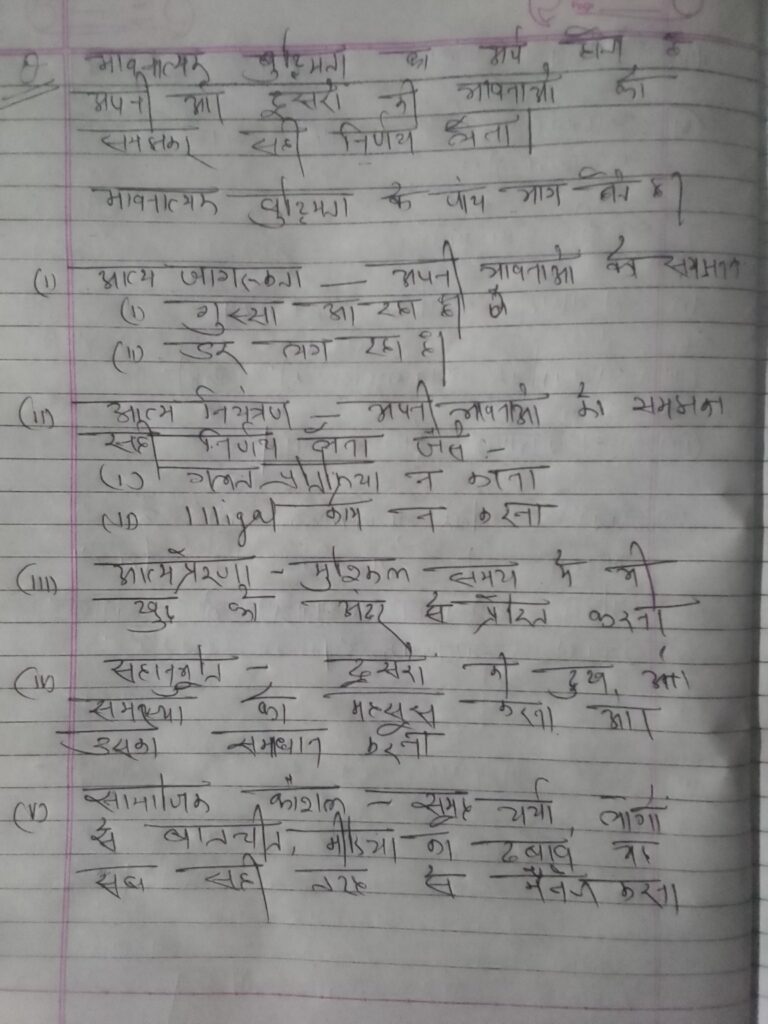 भावनात्मक बुद्धिमता का अर्थ होता है
अपनी और दूसरो की भावनाओ को
समझकर सही निर्णय लेना।
भावनात्मक बुद्धिमता के पांच भाग होते है।
(i) आत्म जागरूकता — अपनी भावनाओ को समझना
(i) गुस्सा आ रहा है।
(ii) डर लग रहा है।
(ii) आत्म नियंत्रण - अपनी भावनाओ को समझकर
सही निर्णय लेना जैसे :-
(i) गलत प्रतिक्रिया न करना
(ii) Illigal काम न करना
(iii) आत्मप्रेरणा - मुश्किल समय मे भी
खुद को अंदर से प्रेरित करना
(iv) सहानुभूति - दूसरो की दुख, और
समस्या को महसूस करना और
उसका समाधान करना
(v) सामाजिक कौशल - समूह चर्चा, लोगो
से बातचीत, मीडिया का दबाव
सही तरह से मैनेज करना